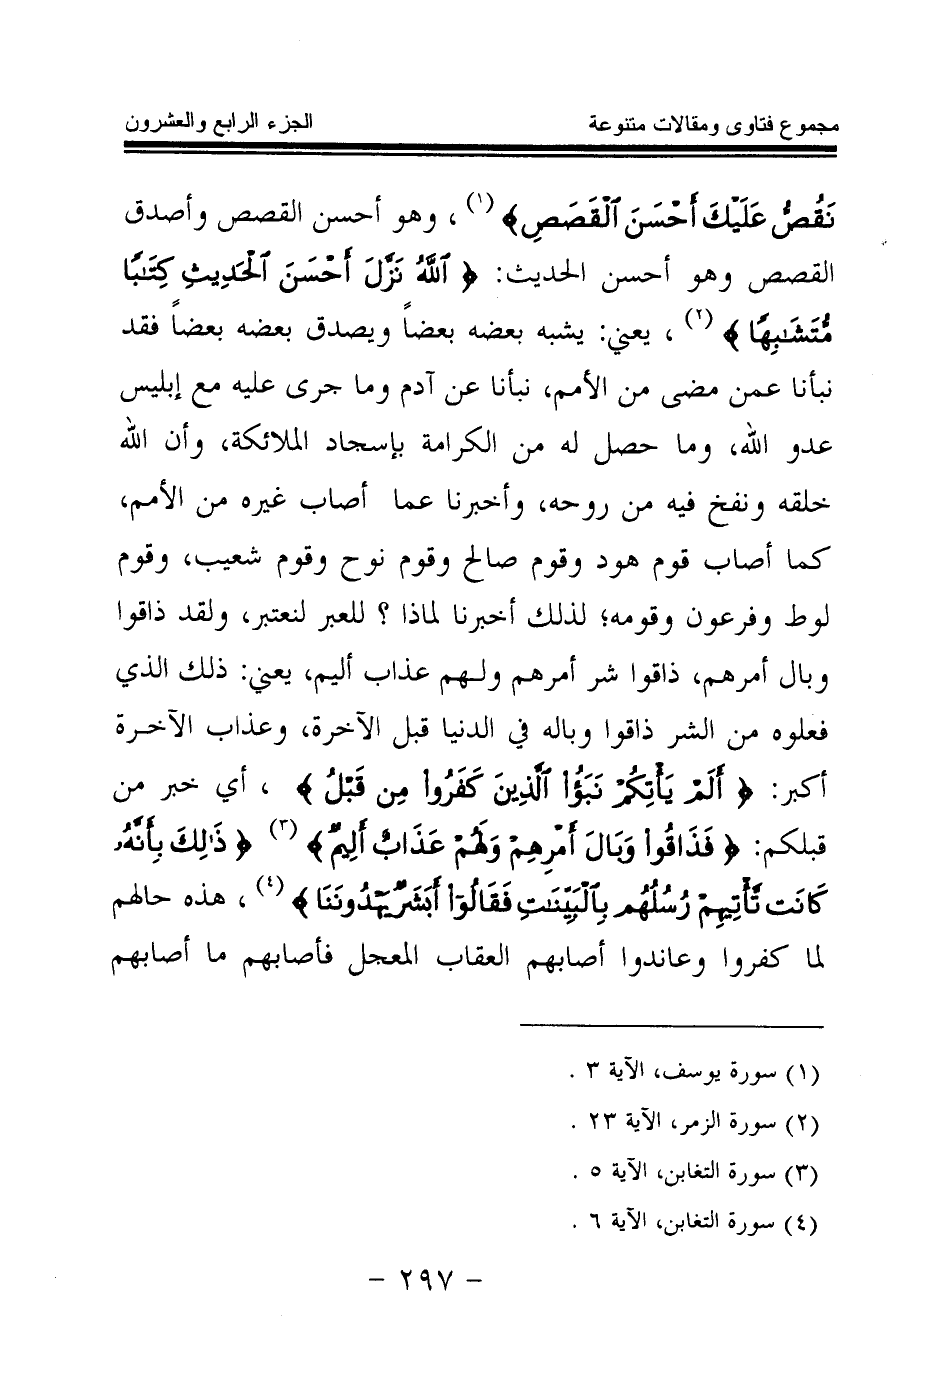 مجموع فتاوى ومقالات متنوعة الجزء الرابع والعشرون
نَقُصُّ عَلَيْكَ أَحْسَنَ ٱلْقَصَصِ﴾ (١) ، وهو أحسن القصص وأصدق
القصص وهو أحسن الحديث: ﴿ ٱللَّهُ نَزَّلَ أَحْسَنَ ٱلْحَدِيثِ كِتَٰبًا
مُّتَشَٰبِهًا ﴾ (٢) ، يعني: يشبه بعضه بعضاً ويصدق بعضه بعضاً فقد
نبأنا عمن مضى من الأمم، نبأنا عن آدم وما جرى عليه مع إبليس
عدو الله، وما حصل له من الكرامة بإسجاد الملائكة، وأن الله
خلقه ونفخ فيه من روحه، وأخبرنا عما أصاب غيره من الأمم،
كما أصاب قوم هود وقوم صالح وقوم نوح وقوم شعيب، وقوم
لوط وفرعون وقومه؛ لذلك أخبرنا لماذا ؟ للعبر لنعتبر، ولقد ذاقوا
وبال أمرهم، ذاقوا شر أمرهم ولهم عذاب أليم، يعني: ذلك الذي
فعلوه من الشر ذاقوا وباله في الدنيا قبل الآخرة، وعذاب الآخرة
أكبر: ﴿ أَلَمْ يَأْتِكُمْ نَبَؤُا۟ ٱلَّذِينَ كَفَرُوا۟ مِن قَبْلُ ﴾ ، أي خبر من
قبلكم: ﴿ فَذَاقُوا۟ وَبَالَ أَمْرِهِمْ وَلَهُمْ عَذَابٌ أَلِيمٌ ﴾ (٣) ﴿ ذَٰلِكَ بِأَنَّهُۥ
كَانَت تَّأْتِيهِمْ رُسُلُهُم بِٱلْبَيِّنَٰتِ فَقَالُوٓا۟ أَبَشَرٌ يَهْدُونَنَا ﴾ (٤) ، هذه حالهم
لما كفروا وعاندوا أصابهم العقاب المعجل فأصابهم ما أصابهم
(١) سورة يوسف، الآية ٣ .
(٢) سورة الزمر، الآية ٢٣ .
(٣) سورة التغابن، الآية ٥ .
(٤) سورة التغابن، الآية ٦ .
- ٢٩٧ -